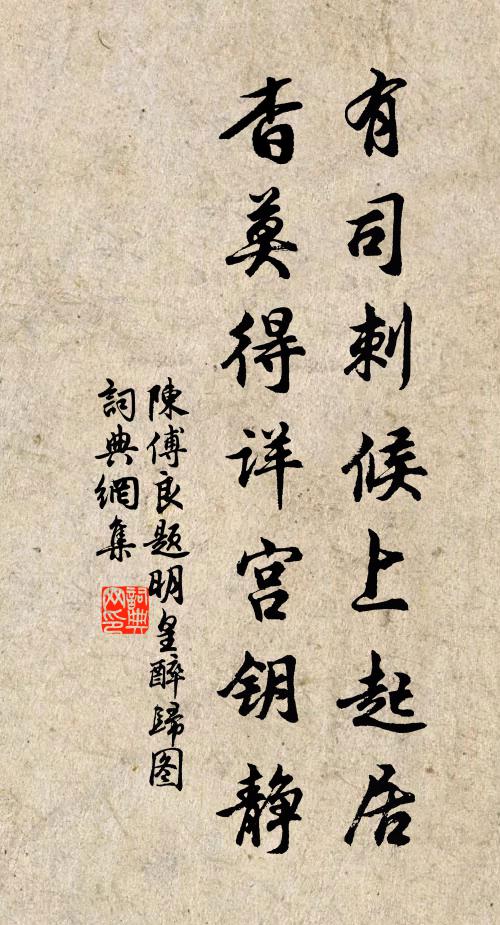 有司刺候上起居
杳莫得详宫钥静
陳傅良题明皇醉歸图
詞典網集
詞典网印